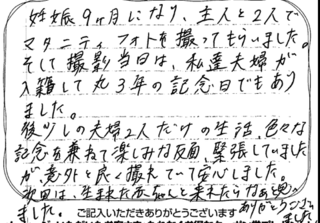 妊娠9ヶ月になり、主人と2人で
マタニティフォトを撮ってもらいました。
そして撮影当日は、私達夫婦が
入籍して丸3年の記念日でもあり
ました。
後少しの夫婦2人だけの生活、色々な
記念を兼ねて楽しみな反面、緊張していました
が、意外と良く撮れていて安心しました。
次回は、生まれた赤ちゃんと来れたらなぁ思い
ました。
ありがとうございました
ご記入いただきありがとうございます